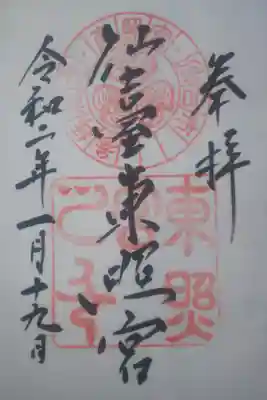 奉拝
仙臺東照宮
令和二年一月十九日
東照